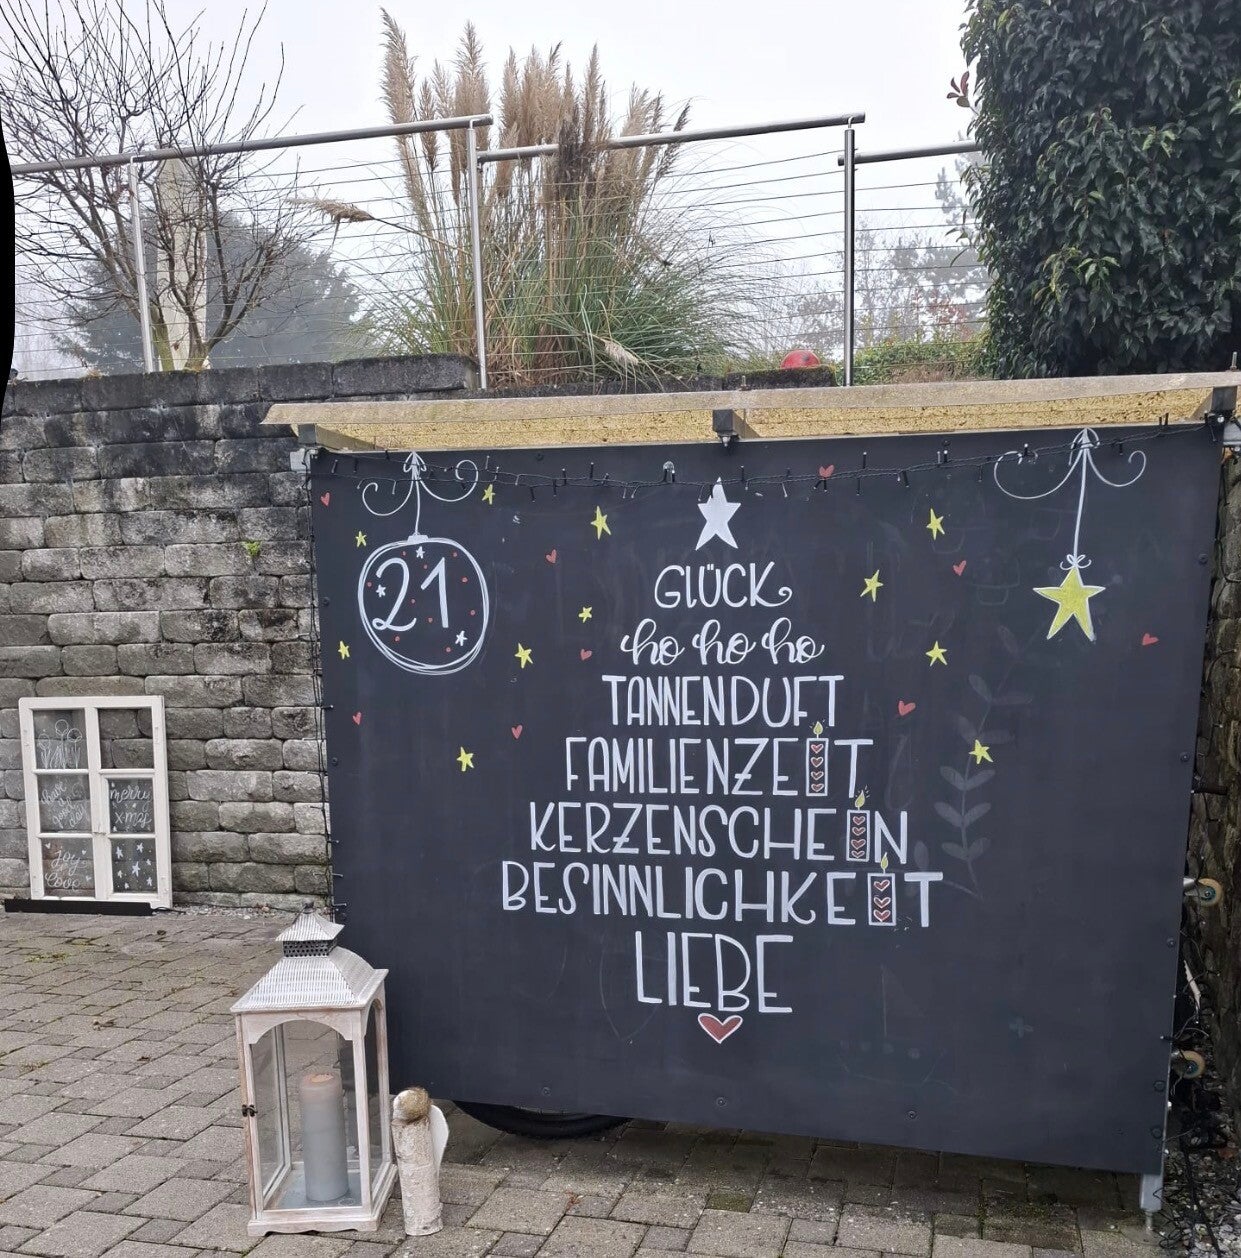 21
GLÜCK
ho ho ho
TANNENDUFT
FAMILIENZEIT
KERZENSCHEIN
BESINNLICHKEIT
LIEBE
merry
x-mas
joy
love